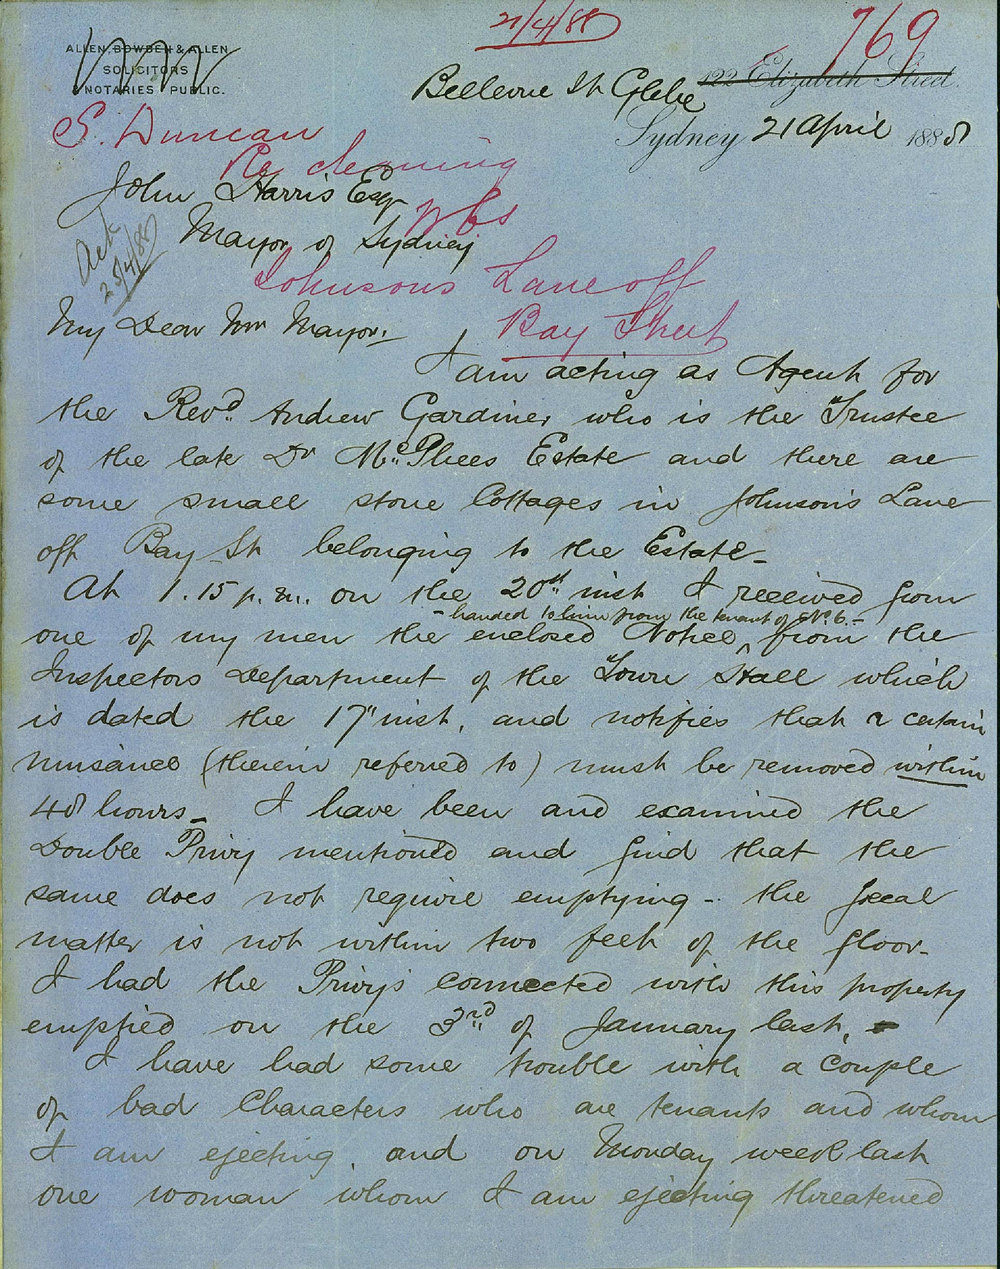 21/4/88
769
ALLEN, BOWDEN & ALLEN
SOLICITORS
& NOTARIES PUBLIC.
122 Elizabeth Street.
Bellevue St Glebe
Sydney 21 April 1888
S. Duncan
Re cleaning
John Harris Esqr
W Cs
Mayor of Sydney
Ack
25/4/88
Johnsons Lane off
Bay Street
My Dear Mr Mayor,
I am acting as Agent for
the Revd. Andrew Gardiner who is the Trustee
of the late Dr McPhees Estate and there are
some small stone Cottages in Johnson's Lane
off Bay St belonging to the Estate -
At 1.15 p.m. on the 20th inst I received from
- handed to him from the tenant of No. 6. -
one of my men the enclosed Notice, from the
Inspectors Department of the Town Hall which
is dated the 17" inst, and notifies that a certain
nuisance (therein referred to) must be removed within
48 hours - I have been and examined the
Double Privy mentioned and find that the
same does not require emptying - the foecal
matter is not within two feet of the floor -
I had the Privy's connected with this property
emptied on the 3rd of January last. -
I have had some trouble with a couple
of bad Characters who are tenants and whom
I am ejecting, and on Monday week last
one woman whom I am ejecting threatened